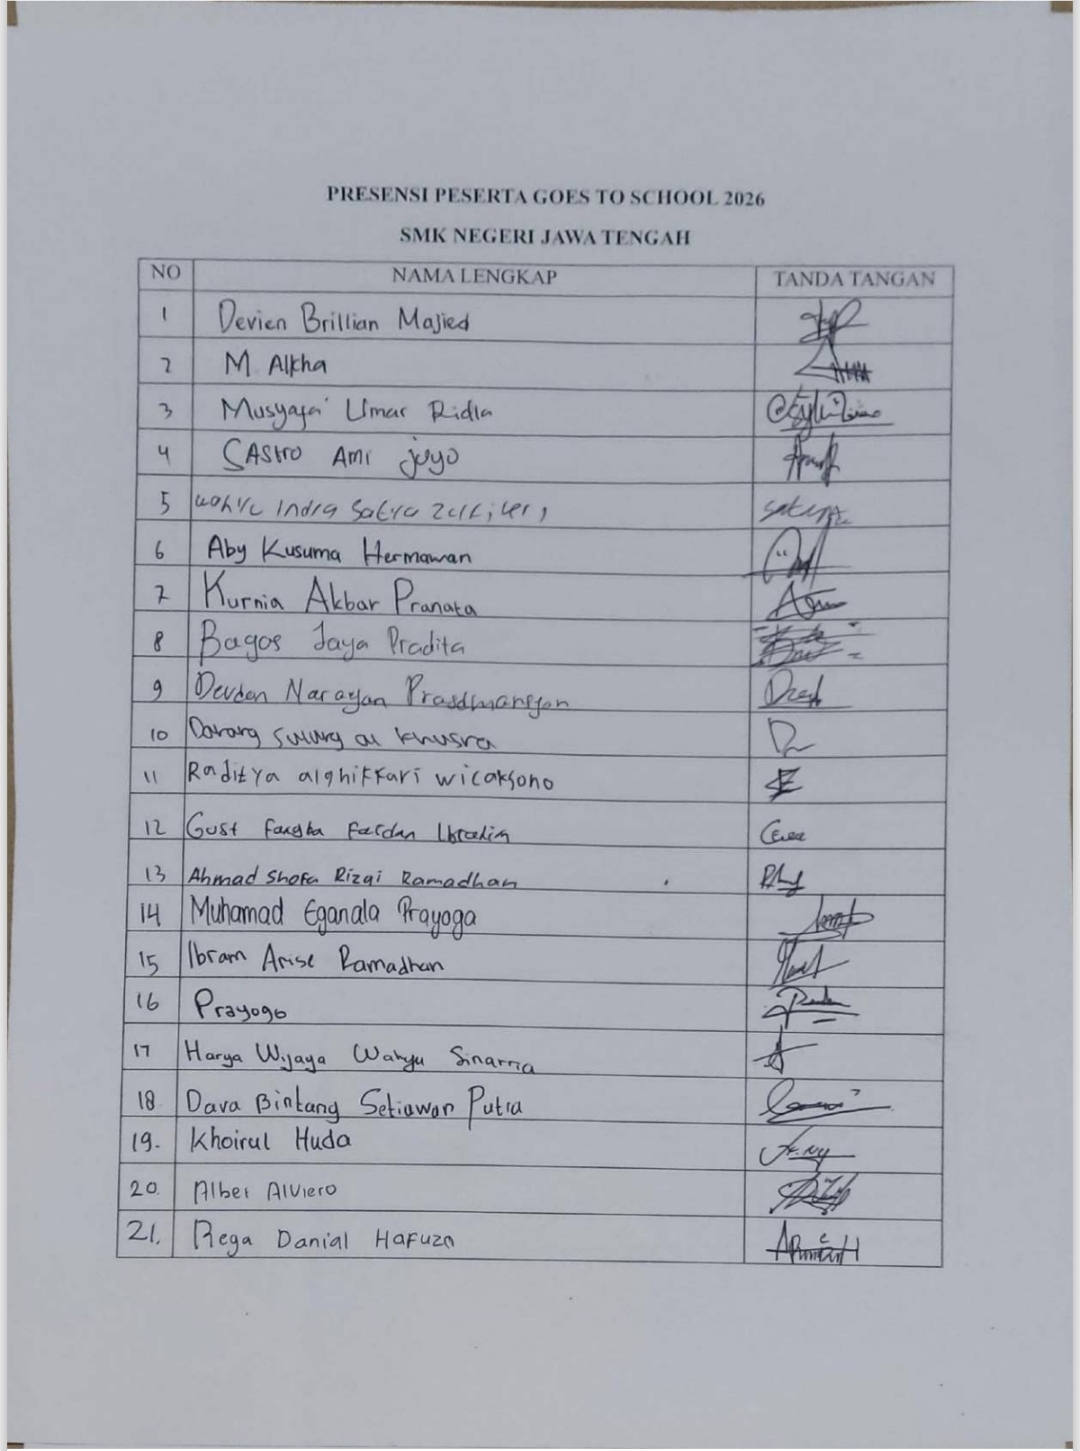 PRESENSI PESERTA GOES TO SCHOOL 2026
SMK NEGERI JAWA TENGAH
NO NAMA LENGKAP TANDA TANGAN
1 Devien Brillian Majied
2 M Alkha
3 Musyafa' Umar Ridla
4 SAStro AMI joyo
5 Indra Satya
6 Aby Kusuma Hermawan
7 Kurnia Akbar Pranata
8 Bagos Jaya Pradita
9 Devdan Narayan
10 Danang sulung al khusra
11 Raditya alghiffari wicaksono
12 Gust Fardan Ibrahim
13 Ahmad Shofa Rizqi Ramadhan
14 Muhamad Eganala Prayoga
15 Ibram Arise Ramadhan
16 Prayogo
17 Harya Wijaya Wahyu Sinarria
18 Dava Bintang Setiawan Putra
19. Khoirul Huda
20. Alber Alviero
21. Rega Danial Hafuza